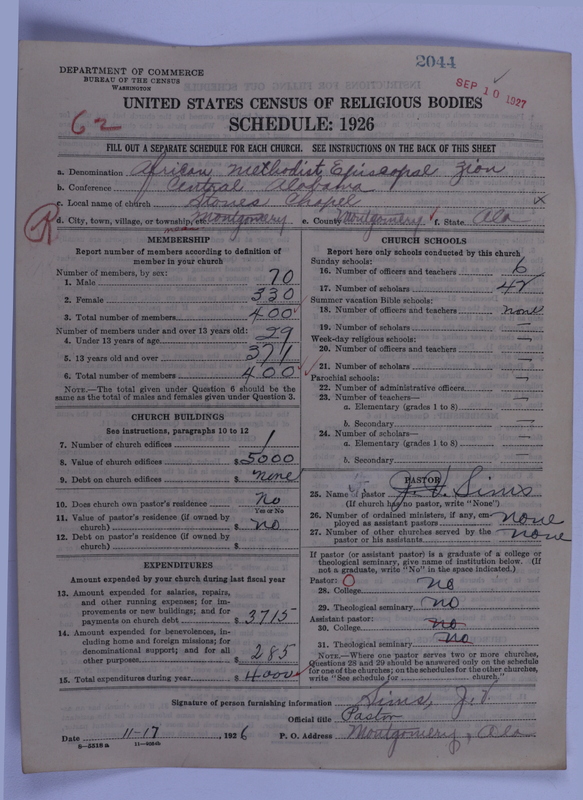 2044
DEPARTMENT OF COMMERCE
BUREAU OF THE CENSUS
WASHINGTON
SEP 10 1927
UNITED STATES CENSUS OF RELIGIOUS BODIES
SCHEDULE: 1926
62
FILL OUT A SEPARATE SCHEDULE FOR EACH CHURCH. SEE INSTRUCTIONS ON THE BACK OF THIS SHEET
a. Denomination African Methodist Episcopal Zion
b. Conference Central Alabama
c. Local name of church Stones Chapel
d. City, town, village, or township, etc. Montgomery e. County Montgomery f. State Ala
R
MEMBERSHIP
Report number of members according to definition of
member in your church
Number of members, by sex:
1. Male 70
2. Female 330
3. Total number of members 400
Number of members under and over 13 years old:
4. Under 13 years of age 29
5. 13 years old and over 371
6. Total number of members 400
NOTE.—The total given under Question 6 should be the
same as the total of males and females given under Question 3.
CHURCH BUILDINGS
See instructions, paragraphs 10 to 12
7. Number of church edifices 1
8. Value of church edifices $5000
9. Debt on church edifices $none
10. Does church own pastor's residence? No
Yes or No
11. Value of pastor's residence (if owned by
church) $ no
12. Debt on pastor's residence (if owned by
church) $
EXPENDITURES
Amount expended by your church during last fiscal year
13. Amount expended for salaries, repairs,
and other running expenses; for im-
provements or new buildings; and for
payments on church debt $3715
14. Amount expended for benevolences, in-
cluding home and foreign missions; for
denominational support; and for all
other purposes $285
15. Total expenditures during year $4000
CHURCH SCHOOLS
Report here only schools conducted by this church
Sunday schools:
16. Number of officers and teachers 6
17. Number of scholars 42
Summer vacation Bible schools:
18. Number of officers and teachers none
19. Number of scholars —
Week-day religious schools:
20. Number of officers and teachers —
21. Number of scholars —
Parochial schools:
22. Number of administrative officers —
23. Number of teachers—
a. Elementary (grades 1 to 8) —
b. Secondary —
24. Number of scholars—
a. Elementary (grades 1 to 8) —
b. Secondary —
PASTOR
25. Name of pastor J. V. Sims
(If church has no pastor, write "None")
26. Number of ordained ministers, if any, em-
ployed as assistant pastors none
27. Number of other churches served by the
pastor or his assistants none
If pastor (or assistant pastor) is a graduate of a college or
theological seminary, give name of institution below. (If
not a graduate, write "No" in the space indicated.)
Pastor:
28. College no
29. Theological seminary no
Assistant pastor:
30. College no
31. Theological seminary no
NOTE.—Where one pastor serves two or more churches,
Questions 28 and 29 should be answered only on the schedule
for one of the churches; on the schedules for the other churches,
write "See schedule for church."
Signature of person furnishing information Sims, J. V
Official title Pastor
Date 11-17, 1926 P. O. Address Montgomery, Ala
8—5518a